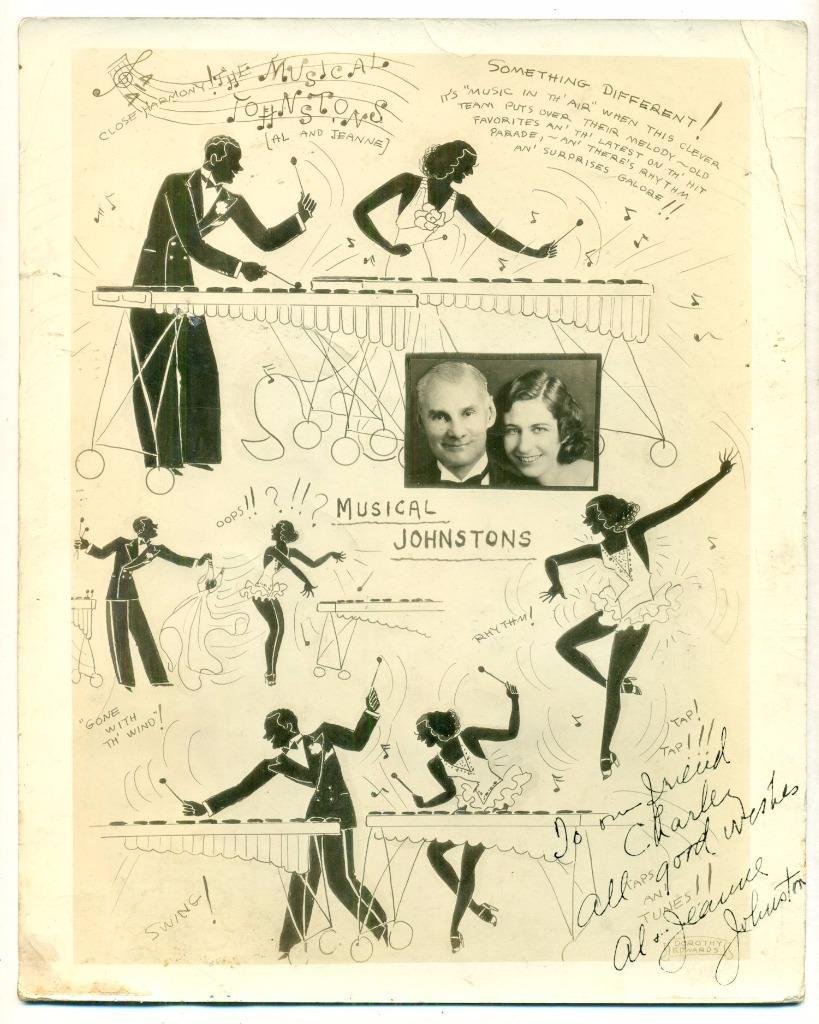 THE MUSICAL
JOHNSTONS
[AL AND JEANNE]
CLOSE HARMONY!
SOMETHING DIFFERENT!
IT'S "MUSIC IN TH' AIR" WHEN THIS CLEVER
TEAM PUTS OVER THEIR MELODY ~ OLD
FAVORITES AN' TH' LATEST ON TH' HIT
PARADE, ~ AN' THERE'S RHYTHM
AN' SURPRISES GALORE!!
MUSICAL
JOHNSTONS
OOPS!! ? !! ?
RHYTHM!
"GONE
WITH
TH' WIND"!
TAP!
TAP!!!
SWING!
TAPS
AN'
TUNES!!
To our friend
Charley
all good wishes
Al & Jeanne
Johnston
DOROTHY
EDWARDS